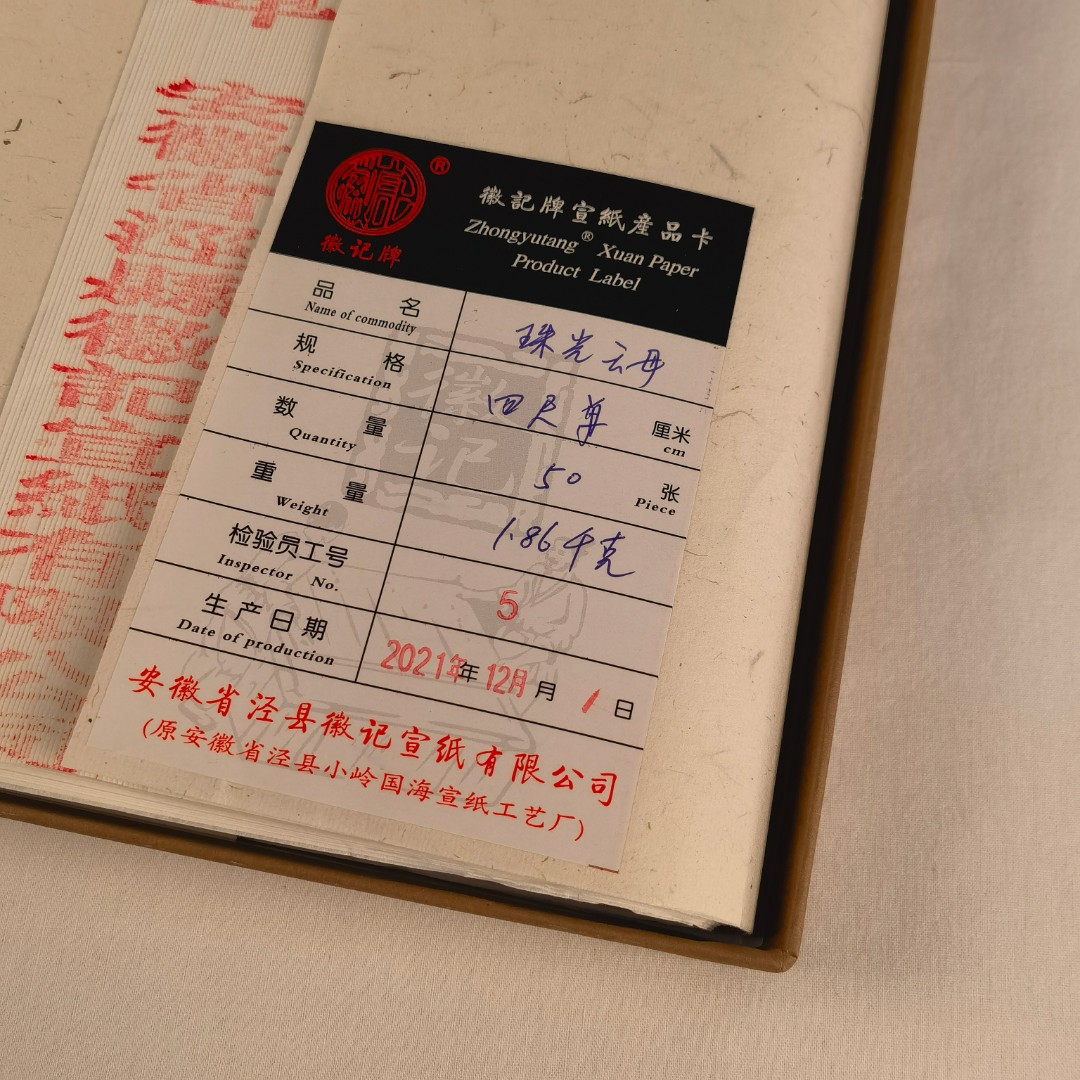 徽記牌宣紙産品卡
Zhongyutang® Xuan Paper
Product Label
®
徽记牌
品名 珠光云母
Name of commodity
规格 四尺单 厘米
Specification cm
数量 50 张
Quantity Piece
重量 1.86千克
Weight
检验员工号 5
Inspector No.
生产日期 2021年年12月月1日
Date of production
安徽省泾县徽记宣纸有限公司
(原安徽省泾县小岭国海宣纸工艺厂)
徽记
安徽省泾县徽記宣紙有限